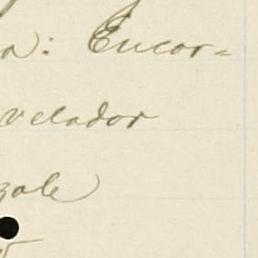 a: Encor=
velador
zale